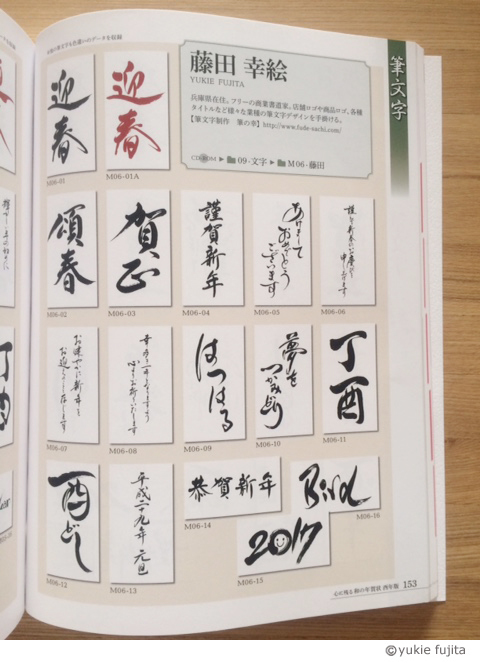 迎春
M06-01
迎春
M06-01A
藤田 幸絵
YUKIE FUJITA
兵庫県在住。フリーの商業書道家。店舗ロゴや商品ロゴ、各種
タイトルなど様々な業種の筆文字デザインを手掛ける。
【筆文字制作 筆の幸】http://www.fude-sachi.com/
CD-ROM ▶ 09-文字 ▶ M06-藤田
筆文字
頌春
M06-02
賀正
M06-03
謹賀新年
M06-04
あけまして
おめでとう
ございます
M06-05
謹んで新春のお慶びを
申し上げます
M06-06
お健やかに新年を
お迎えのことと存じます
M06-07
幸多き一年となりますよう
心よりお祈りいたします
M06-08
はつはる
M06-09
夢を
つかみどり
M06-10
丁酉
M06-11
酉どし
M06-12
平成二十九年 元旦
M06-13
恭賀新年
M06-14
Bird
M06-16
2017
M06-15
心に残る 和の年賀状 酉年版 153
©yukie fujita